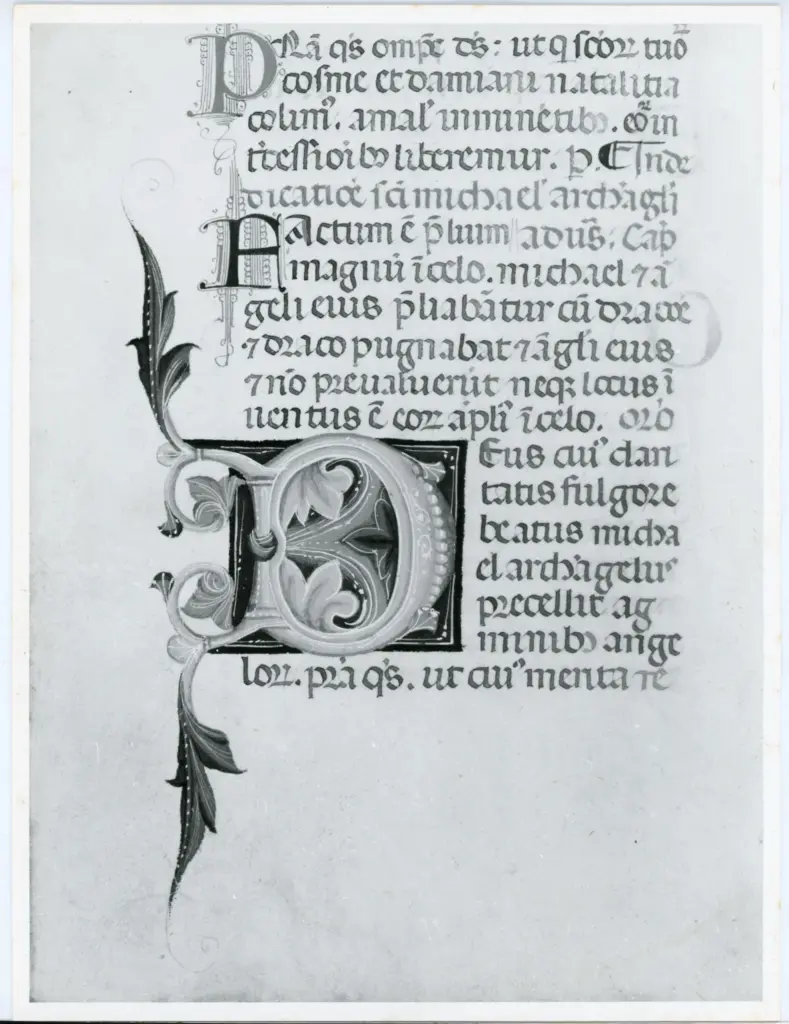 PRa q̄s omp̄e ds̄: ut q sco⁊ tuo⁊
cosme et damiani natalitia
colim᾽. a mal᾽ iminētib᾽. eo⁊ in
t̄cessioib᾽ liberemur. p. In de
dicatiōe sc̄i michael᾽ archāgli
FActum ē p̄lium adus᾽. Cap
magnū ī celo. michael ⁊ ā
geli eius p̄liabātur cū dracōe
⁊ draco pugnabat ⁊ āgli eius
⁊ nō preualuerūt neq; locus ī
uentus ē eo⁊ āpli᾽ ī celo. oro
DEus cui᾽ clari
tatis fulgore
beatus micha
el archāgelus
precellit ag
minib᾽ ange
lo⁊. pr̄a q̄s. ut cui᾽ merita ve